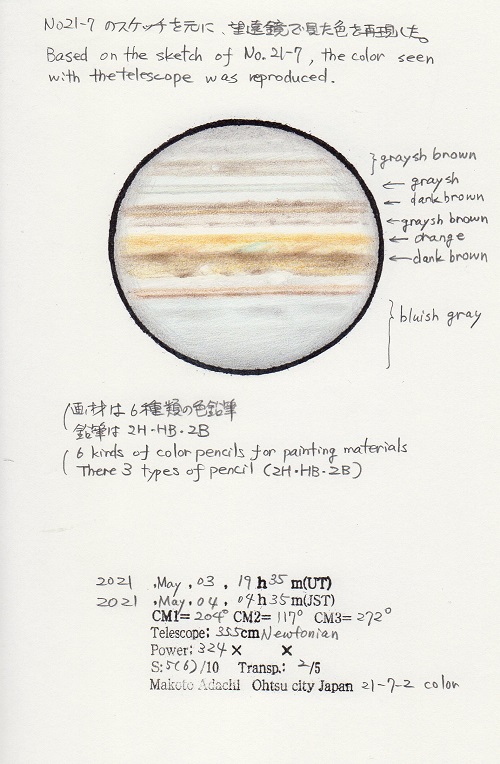 No21-7 のスケッチを元に、望遠鏡で見た色を再現した。
Based on the sketch of No.21-7, the color seen
with the telescope was reproduced.
graysh brown
graysh
dank brown
graysh brown
orange
dank brown
bluish gray
画材は6種類の色鉛筆
鉛筆は2H・HB・2B
6 kinds of color pencils for painting materials
There 3 types of pencil (2H・HB・2B)
2021 .May . 03 . 19 h 35 m(UT)
2021 .May . 04 . 04 h 35 m(JST)
CM1= 204° CM2= 117° CM3= 272°
Telescope: 355cm Newtonian
Power: 324 × ×
S: 5(6)/10 Transp.: 2/5
Makoto Adachi Ohtsu city Japan 21-7-2 color